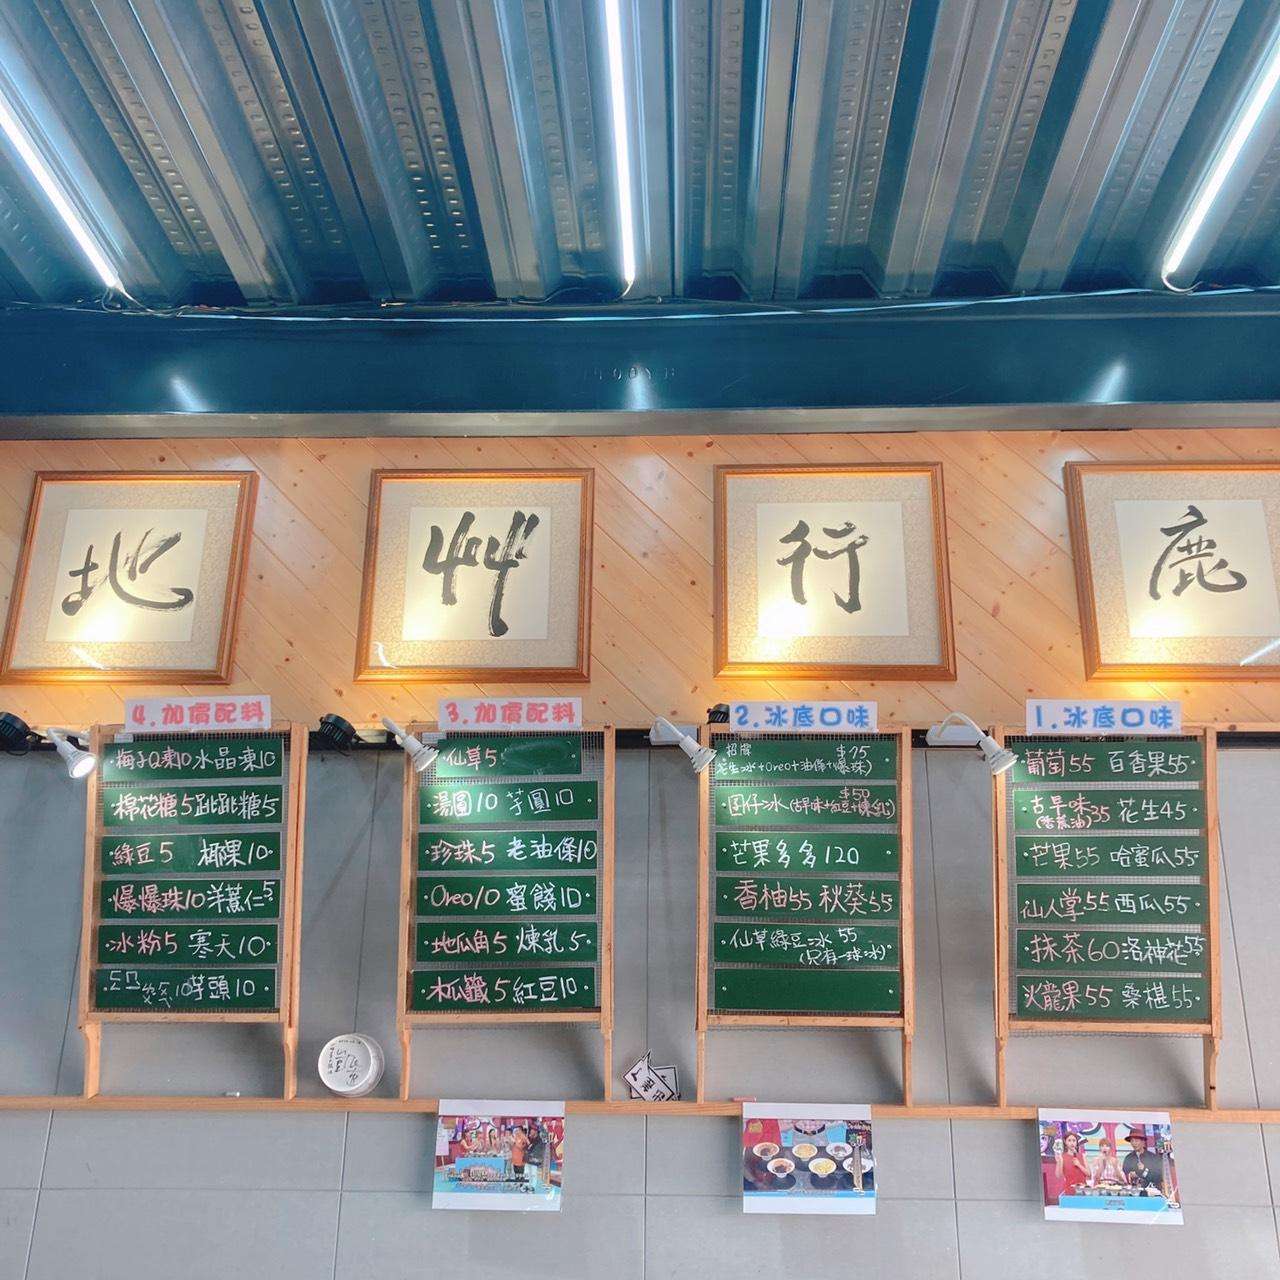 地 艸 行 鹿
4.加價配料
梅子Q凍10 水晶凍10
棉花糖5 跳跳糖5
綠豆5 椰果10
爆爆珠10 洋薏仁5
冰粉5 寒天10
芋頭10
3.加價配料
仙草5
湯圓10 芋圓10
珍珠5 老油條10
Oreo10 蜜餞10
地瓜角5 煉乳5
木瓜籤5 紅豆10
2.冰底口味
招牌
花生冰+Oreo+油條+爆珠)
囝仔冰(古早味+紅豆+煉乳) $50
芒果多多120
香柚55 秋葵55
仙草綠豆冰 55
(只有一球冰)
1.冰底口味
葡萄55 百香果55
古早味35 花生45
(香蕉油)
芒果55 哈蜜瓜55
仙人掌55 西瓜55
抹茶60 洛神花55
火龍果55 桑椹55